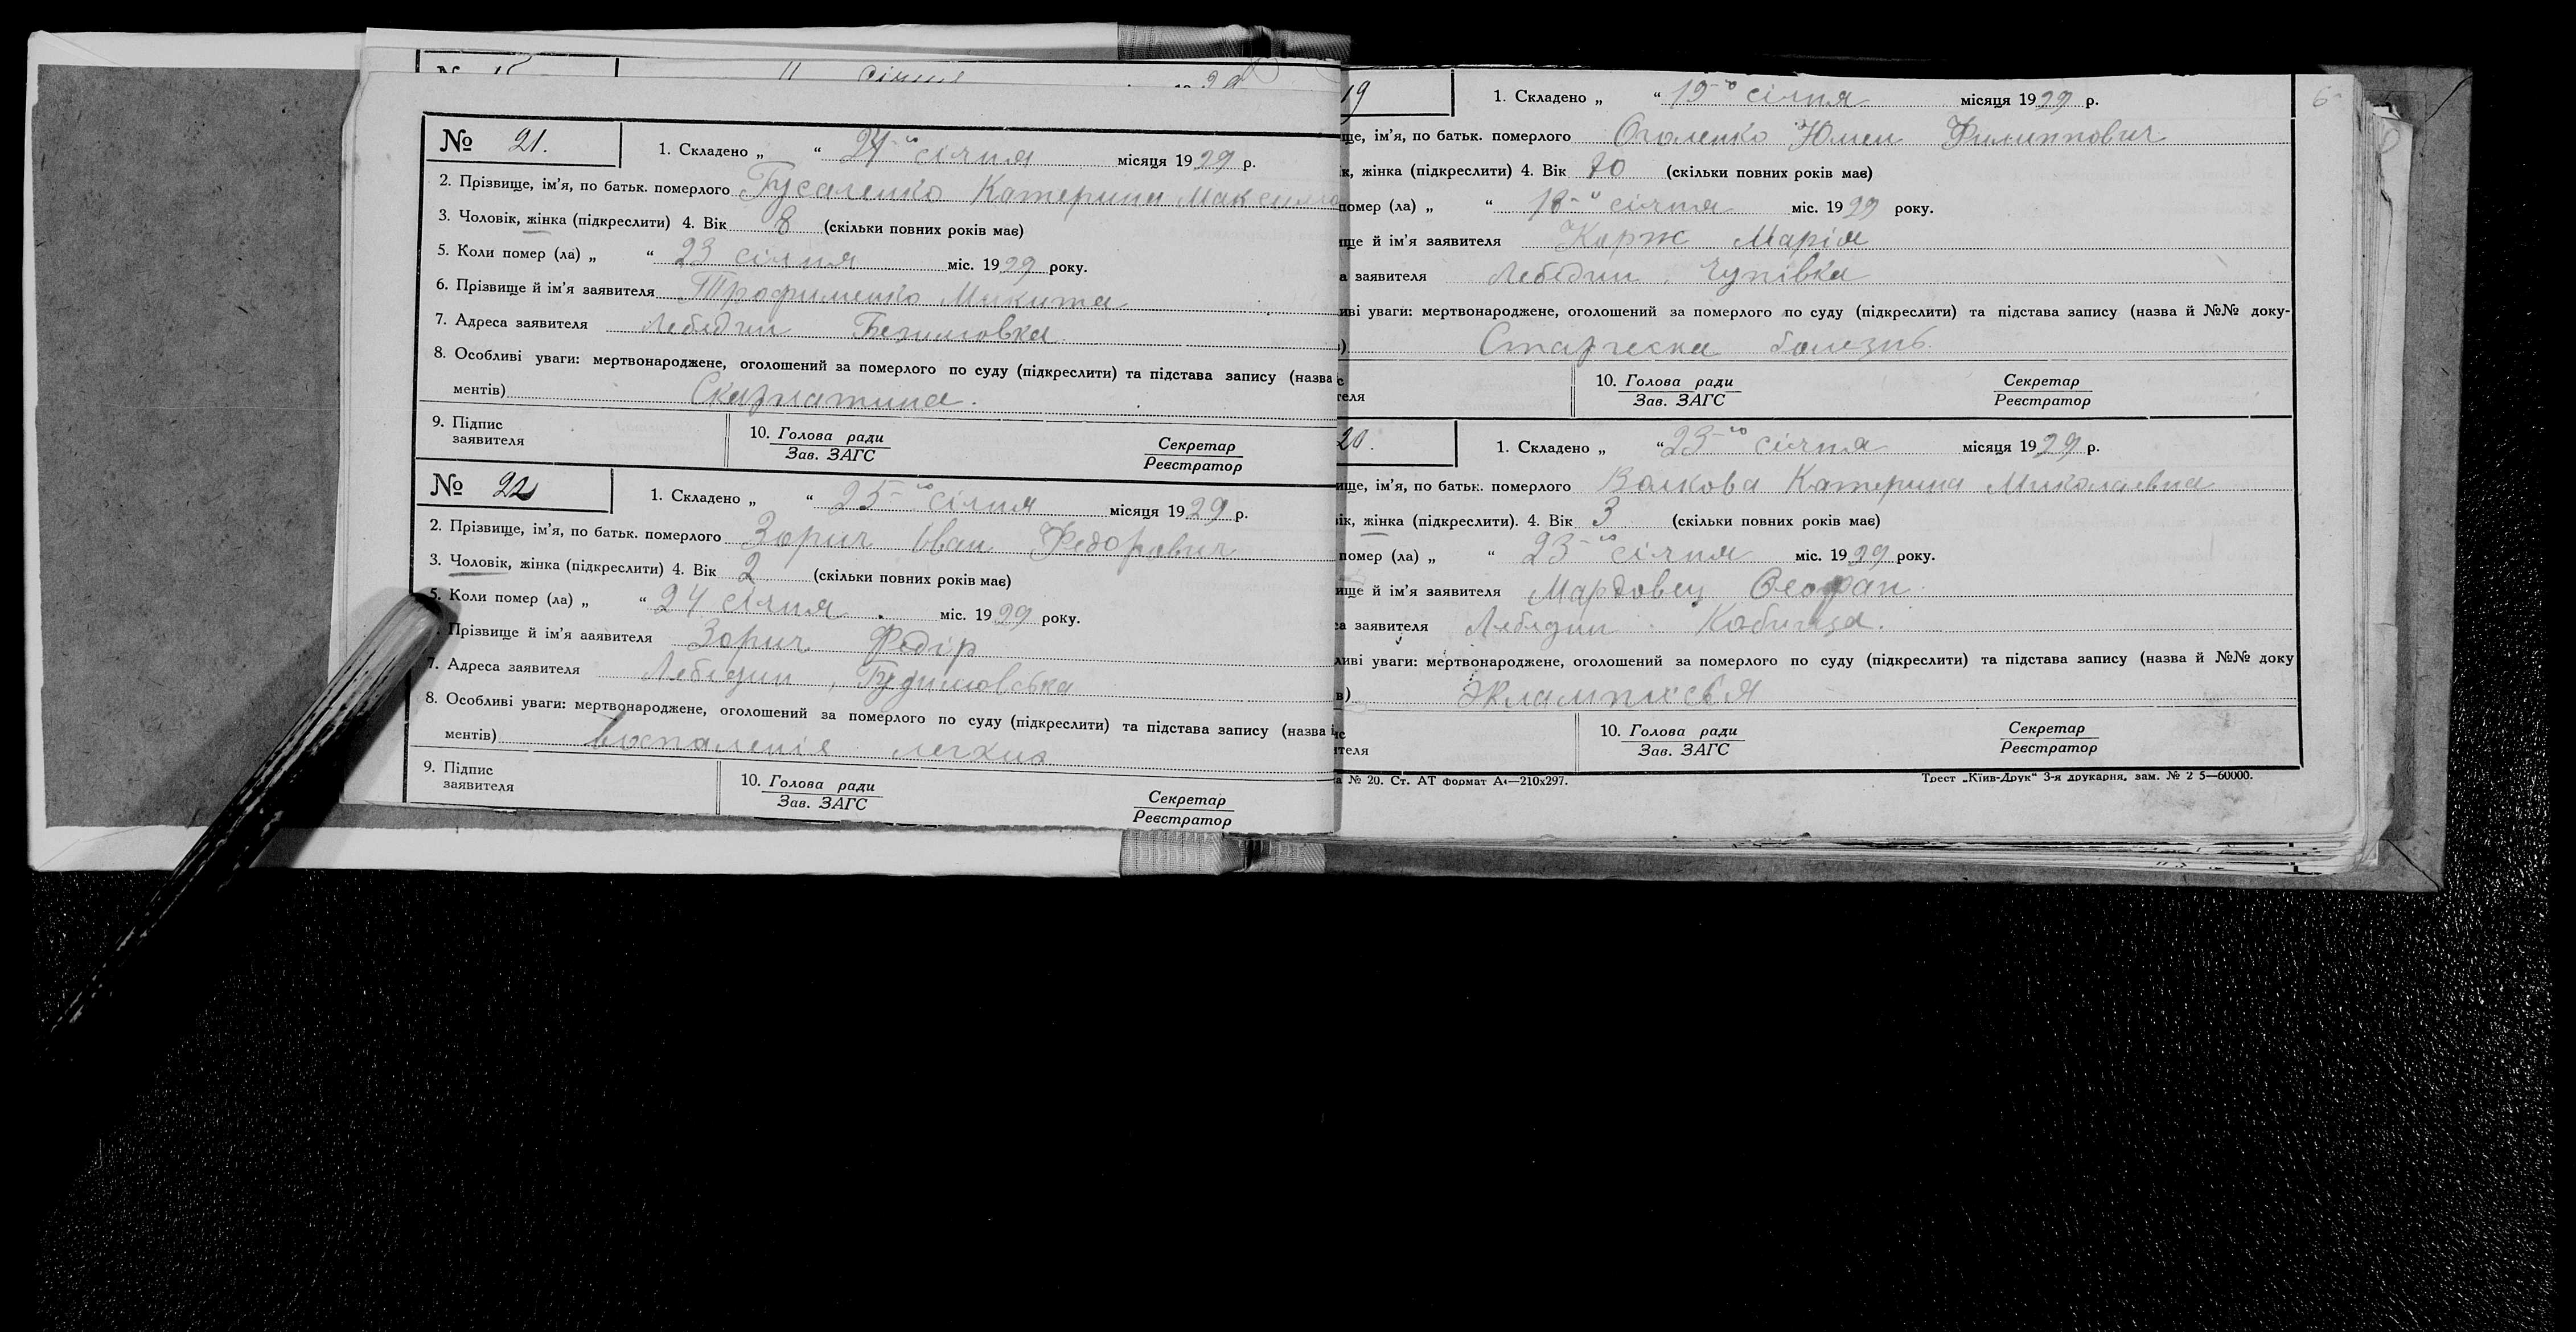 № 21.
1. Складено „ “ 24-го січня місяця 1929 р.
2. Прізвище, ім'я, по батьк. померлого Гусаленко Катерина Максимо
3. Чоловік, жінка (підкреслити) 4. Вік 8 (скільки повних років має)
5. Коли помер (ла) „ “ 23 січня міс. 1929 року.
6. Прізвище й ім'я заявителя Трофименко Микита
7. Адреса заявителя Лебедин
8. Особливі уваги: мертвонароджене, оголошений за померлого по суду (підкреслити) та підстава запису (назва
ментів) Скарлатина.
9. Підпис
заявителя
10. Голова ради
Зав. ЗАГС
Секретар
Реєстратор
№ 22
1. Складено „ “ 25-го січня місяця 1929 р.
2. Прізвище, ім'я, по батьк. померлого Зорич Іван Федорович
3. Чоловік, жінка (підкреслити) 4. Вік 2 (скільки повних років має)
5. Коли помер (ла) „ “ 24 січня міс. 1929 року.
Прізвище й ім'я ааявителя Зорич Федір
7. Адреса заявителя Лебедин, Гудимовська
8. Особливі уваги: мертвонароджене, оголошений за померлого по суду (підкреслити) та підстава запису (назва
ментів) воспаленія легких
9. Підпис
заявителя
10. Голова ради
Зав. ЗАГС
Секретар
Реєстратор
19
1. Складено „ “ 19-го січня місяця 1929 р.
ще, ім'я, по батьк. померлого Филиппович
к, жінка (підкреслити) 4. Вік 70 (скільки повних років має)
помер (ла) „ “ 18-го січня міс. 1929 року.
ще й ім'я заявителя Корж Марія
а заявителя Лебедин, Чупівка
иві уваги: мертвонароджене, оголошений за померлого по суду (підкреслити) та підстава запису (назва й №№ доку-
) Старческа болезнь
10. Голова ради
Зав. ЗАГС
Секретар
Реєстратор
20.
1. Складено „ “ 23-го січня місяця 1929 р.
ище, ім'я, по батьк. померлого Волкова Катерина Миколаевна
ік, жінка (підкреслити). 4. Вік 3 (скільки повних років має)
помер (ла) „ “ 23-го січня міс. 1929 року.
ище й ім'я заявителя Мардовец Феофан
са заявителя Лебедин. Кобижча.
ливі уваги: мертвонароджене, оголошений за померлого по суду (підкреслити) та підстава запису (назва й №№ доку
в)
10. Голова ради
Зав. ЗАГС
Секретар
Реєстратор
а № 20. Ст. АТ формат А4—210х297.
Трест „Київ-Друк“ 3-я друкарня, зам. № 2 5—60000.